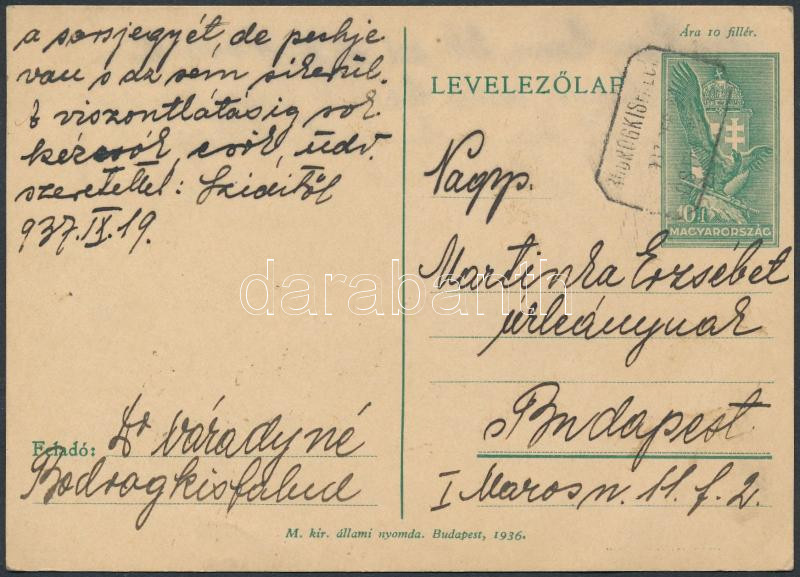 a sorsjegyét, de pechje
van s az sem sikerül.
A viszontlátásig sok
kézcsók, csók, üdv.
szeretettel: Sziditől
937. IX. 19.
Feladó: Dr Váradyné
Bodrogkisfalud
Ára 10 fillér.
LEVELEZŐLAP
BODROGKISFALUD
10 f
MAGYARORSZÁG
Nagys.
Martinka Erzsébet
úrleánynak
Budapest
I Maros u. 11. f. 2.
M. kir. állami nyomda. Budapest, 1936.
darabanth